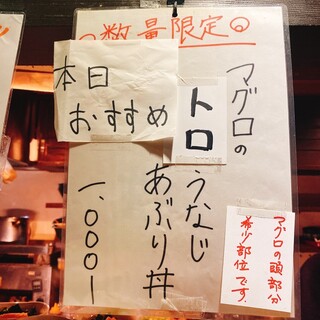 ○数量限定○
本日
おすすめ
マグロの
トロ
うなじ
あぶり丼
一、〇〇〇ー
マグロの頭部分
希少部位です。